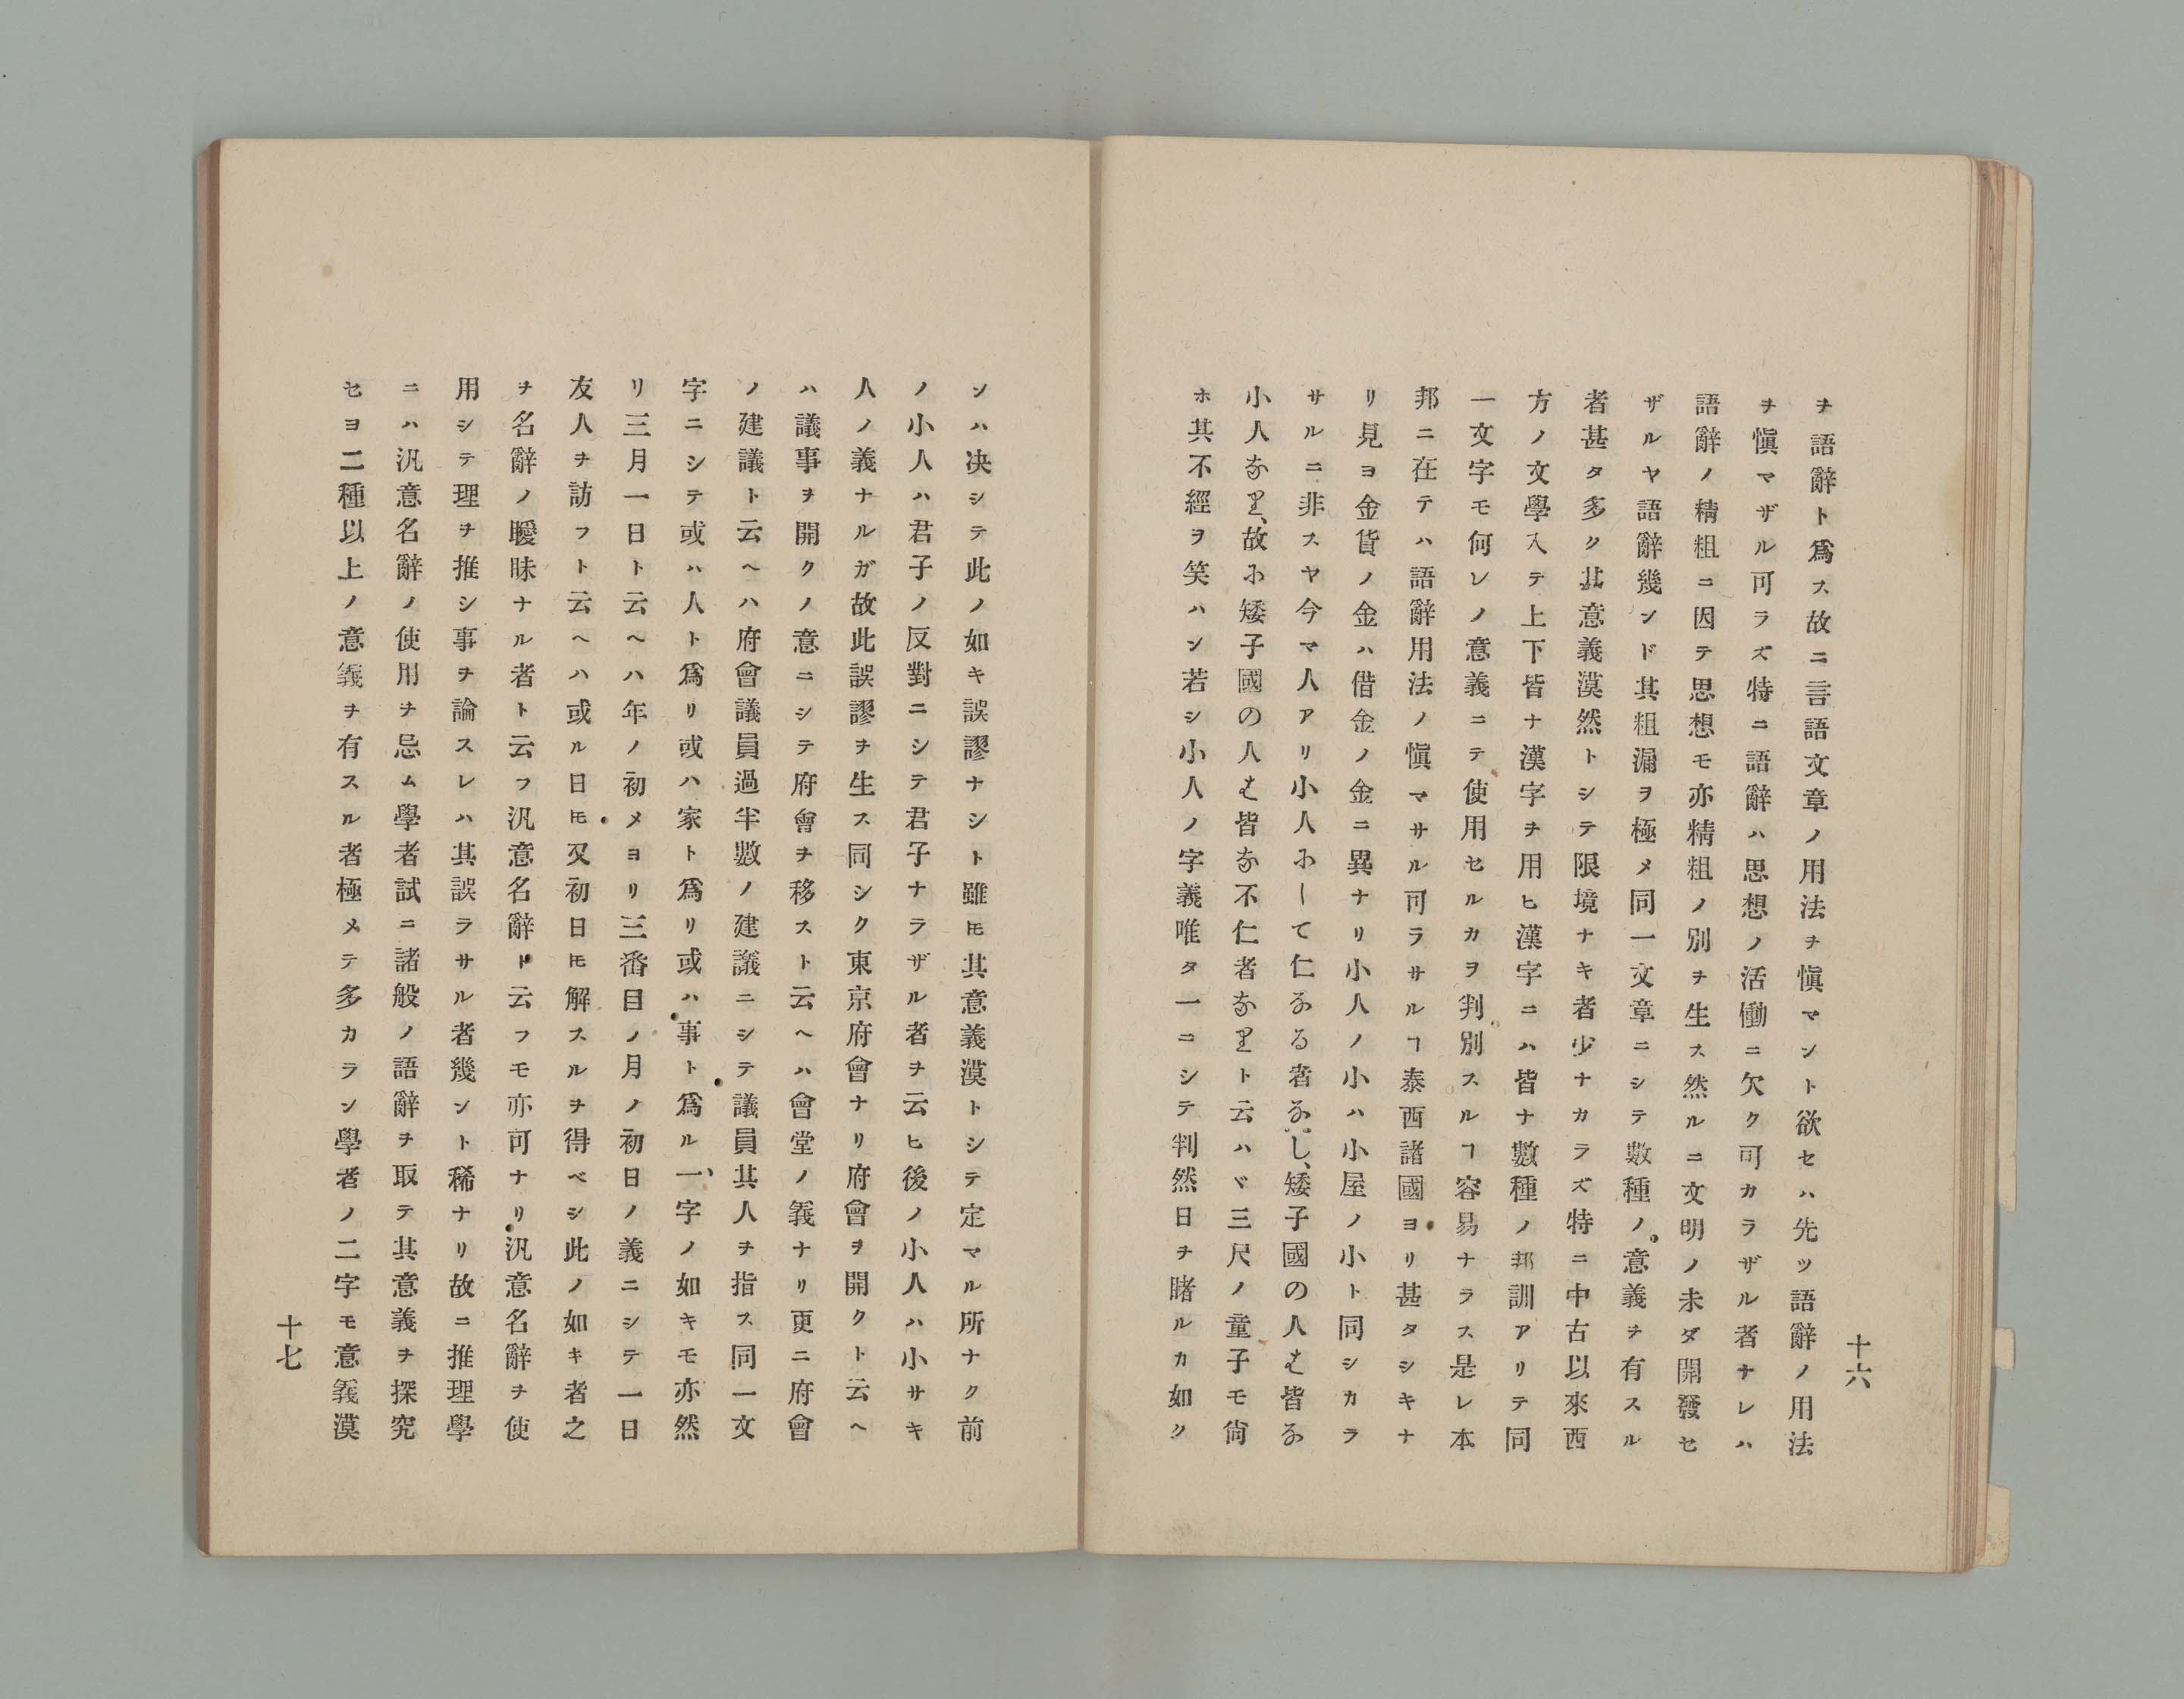 十六
ヲ語辭ト爲ス故ニ言語文章ノ用法ヲ愼マント欲セハ先ツ語辭ノ用法
ヲ愼マザル可ラズ特ニ語辭ハ思想ノ活働ニ欠ク可カラザル者ナレハ
語辭ノ精粗ニ因テ思想モ亦精粗ノ別ヲ生ス然ルニ文明ノ未ダ開發セ
ザルヤ語辭幾ンド其粗漏ヲ極メ同一文章ニシテ數種ノ意義ヲ有スル
者甚タ多ク其意義漠然トシテ限境ナキ者少ナカラズ特ニ中古以來西
方ノ文學入テ上下皆ナ漢字ヲ用ヒ漢字ニハ皆ナ數種ノ邦訓アリテ同
一文字モ何レノ意義ニテ使用セルカヲ判別スルヿ容易ナラス是レ本
邦ニ在テハ語辭用法ノ愼マサル可ラサルヿ泰西諸國ヨリ甚タシキナ
リ見ヨ金貨ノ金ハ借金ノ金ニ異ナリ小人ノ小ハ小屋ノ小ト同シカラ
サルニ非スヤ今マ人アリ小人ふーて仁なる者なし、矮子國の人は皆な
小人なり、故ふ矮子國の人は皆な不仁者なりト云ハヾ三尺ノ童子モ尙
ホ其不經ヲ笑ハン若シ小人ノ字義唯タ一ニシテ判然日ヲ睹ルカ如ク
ンハ决シテ此ノ如キ誤謬ナシト雖𪜈其意義漠トシテ定マル所ナク前
ノ小人ハ君子ノ反對ニシテ君子ナラザル者ヲ云ヒ後ノ小人ハ小サキ
人ノ義ナルガ故此誤謬ヲ生ス同シク東京府會ナリ府會ヲ開クト云ヘ
ハ議事ヲ開クノ意ニシテ府會ヲ移スト云ヘハ會堂ノ義ナリ更ニ府會
ノ建議ト云ヘハ府會議員過半數ノ建議ニシテ議員其人ヲ指ス同一文
字ニシテ或ハ人ト爲リ或ハ家ト爲リ或ハ事ト爲ル一字ノ如キモ亦然
リ三月一日ト云ヘハ年ノ初メヨリ三番目ノ月ノ初日ノ義ニシテ一日
友人ヲ訪フト云ヘハ或ル日𪜈又初日𪜈解スルヲ得ベシ此ノ如キ者之
ヲ名辭ノ曖昧ナル者ト云フ汎意名辭ト云フモ亦可ナリ汎意名辭ヲ使
用シテ理ヲ推シ事ヲ論スレハ其誤ラサル者幾ント稀ナリ故ニ推理學
ニハ汎意名辭ノ使用ヲ忌ム學者試ニ諸般ノ語辭ヲ取テ其意義ヲ探究
セヨ二種以上ノ意義ヲ有スル者極メテ多カラン學者ノ二字モ意義漠
十七